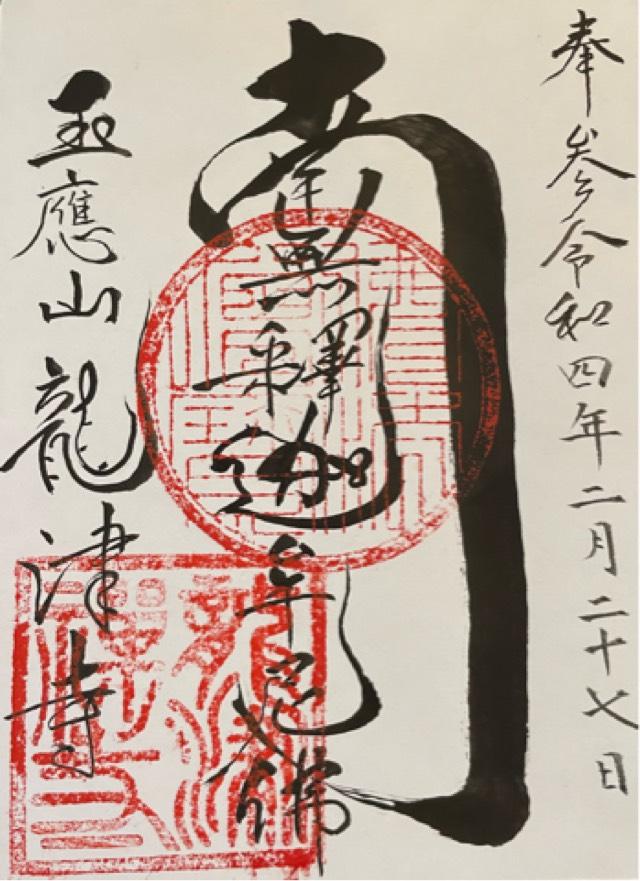 奉参令和四年二月二十七日
南無釋迦牟尼佛
玉應山龍津寺